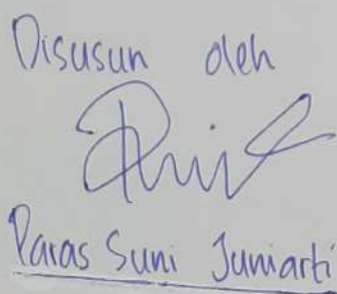 Disusun oleh
Paras Suni Juniarti